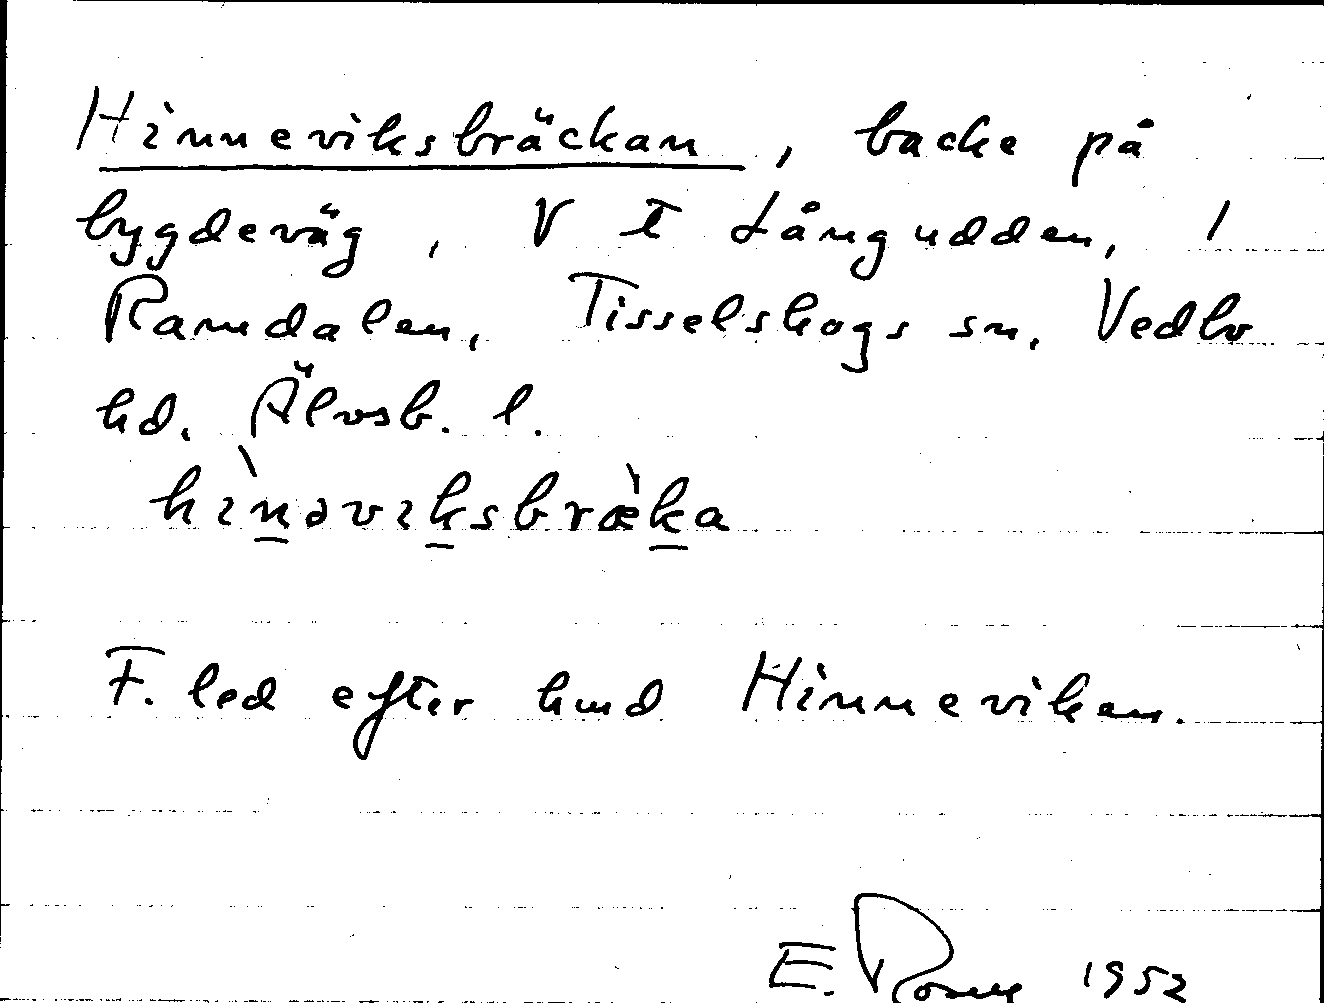 Hinneviksbräckan, backe på
bygdeväg, V t Långudden, 1
Ramdalen, Tisselskogs sn, Vedbo
hd. Älvsb. l.
hìnəviksbræ̀ka
F. led efter hmd Hinneviken.
E. 1952